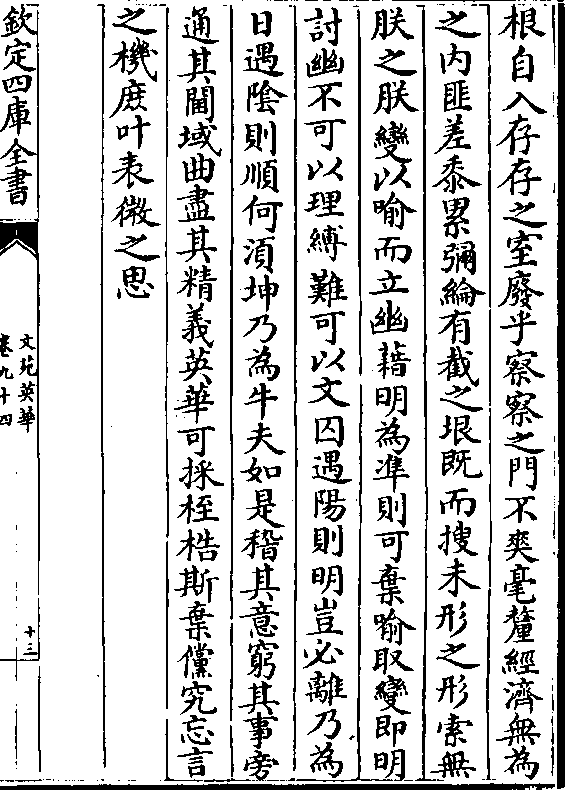 根自入存存之室廢乎察察之門不爽毫釐經濟無為
之内匪差黍累彌綸有截之垠既而搜未形之形索無
朕之朕變以喻而立幽藉明為準則可棄喻取變即明
討幽不可以理縛難可以文囚遇陽則明豈必離乃為
日遇陰則順何湏坤乃為牛夫如是稽其意窮其事旁
通其閫域曲盡其精義英華可採桎梏斯棄儻究忘言
之機庶叶表微之思
欽定四庫全書
文苑英華
卷九十四
十三